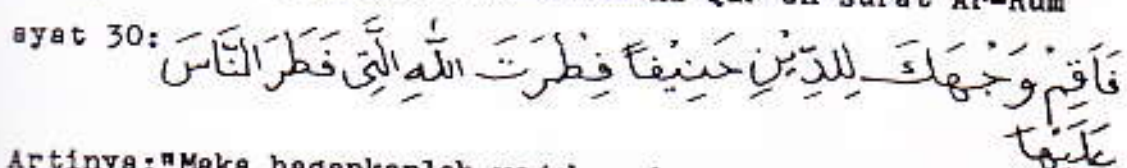 Qur'an Surat Ar-Rum
ayat 30: فَاَقِمْ وَجْهَكَ لِلدِّيْنِ حَنِيْفًا فِطْرَتَ اللهِ الَّتِى فَطَرَ النَّاسَ
عَلَيْهَا
Artinya:"Maka